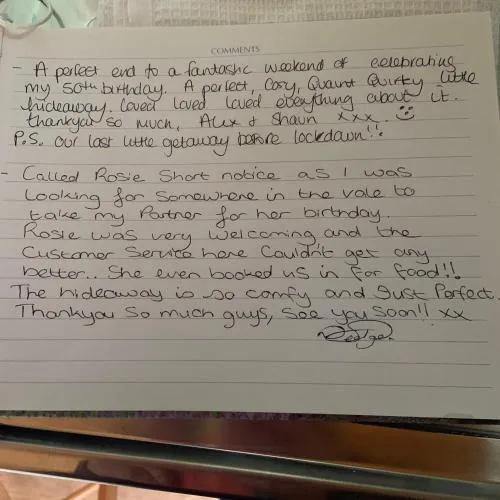 COMMENTS
- A perfect end to a fantastic weekend of celebrating
my 50th birthday. A perfect, Cosy, Quaint Quirky little
hideaway. Loved loved loved everything about it.
Thankyou so much, Alex & Shaun xxx.
P.S. Our last little getaway before lockdown!!
- Called Rosie Short notice as I was
Looking for Somewhere in the vale to
take my Partner for her birthday.
Rosie was very Welcoming and the
Customer Service here Couldn't get any
better.. She even booked us in for food!!
The hideaway is so comfy and Just Perfect.
Thankyou so much guys, see you soon!! xx